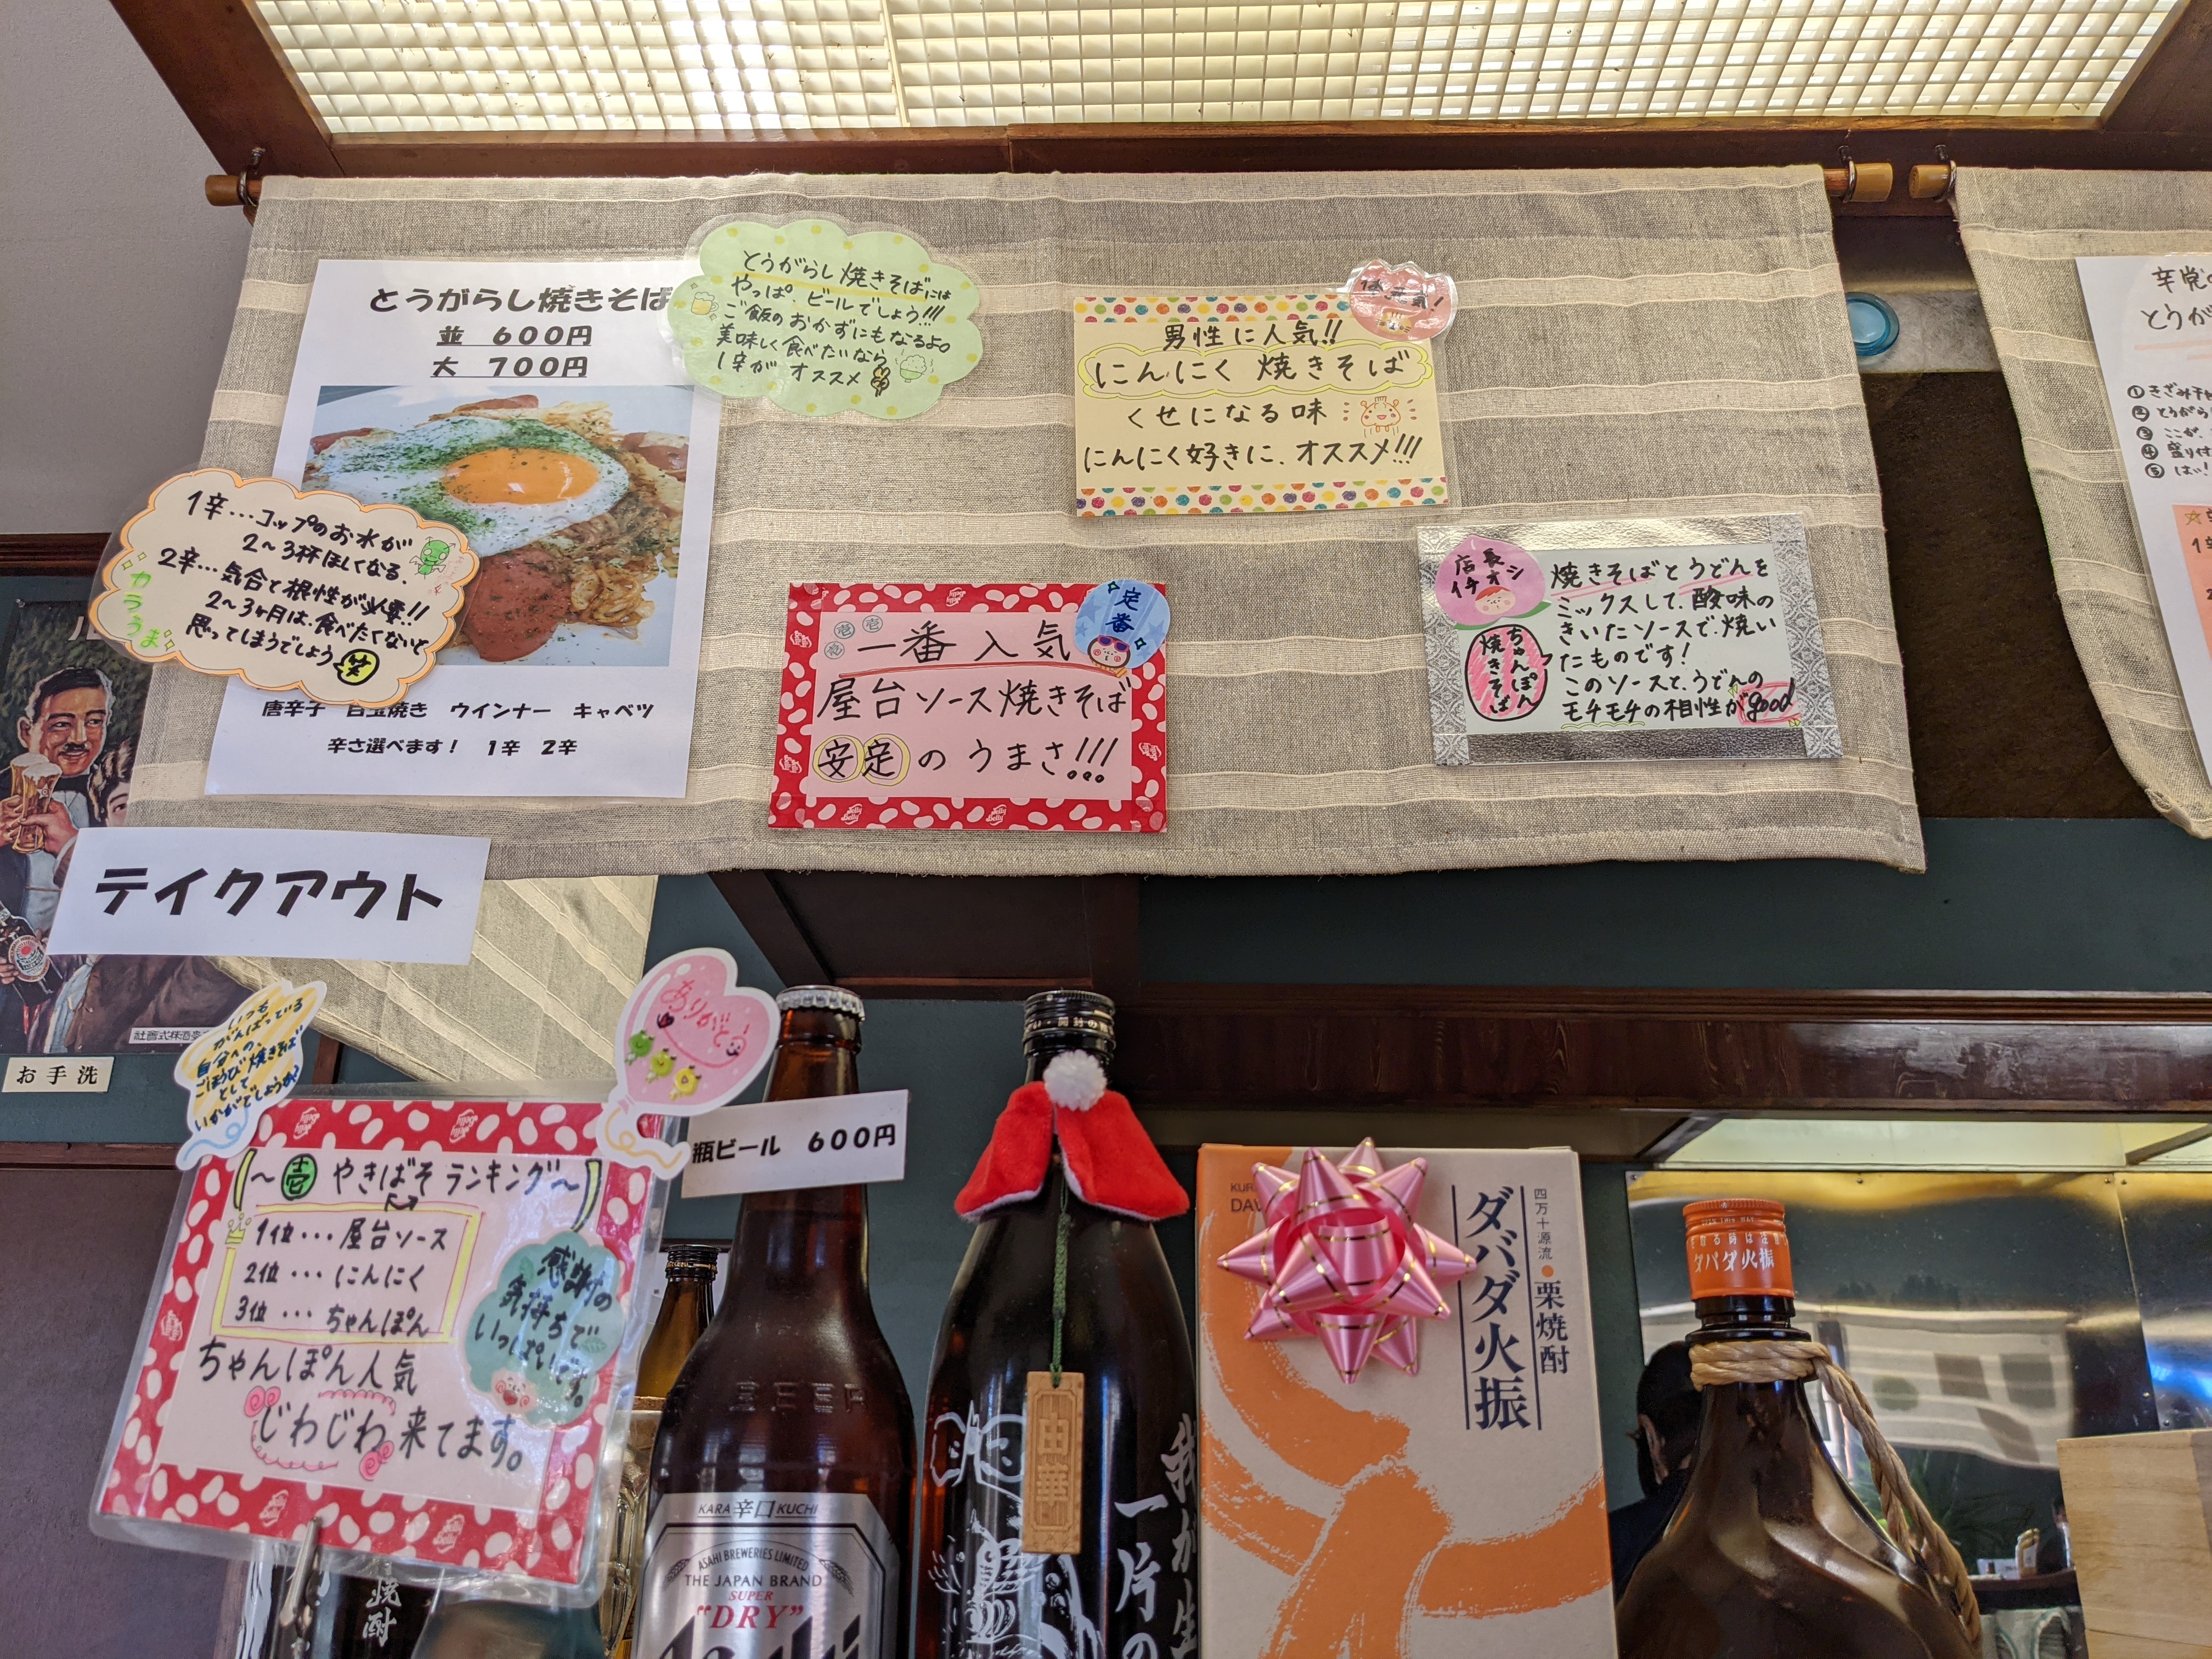 とうがらし焼きそば
並 600円
大 700円
唐辛子 目玉焼き ウインナー キャベツ
辛さ選べます! 1辛 2辛
とうがらし焼きそばには
やっぱ、ビールでしょう!!!
ご飯のおかずにもなるよ。
美味しく食べたいなら
1辛が オススメ
1辛…コップのお水が
2〜3杯ほしくなる。
2辛…気合と根性が必要!!
2〜3ヶ月は、食べたくないと
思ってしまうでしょう
笑
カラうま
男性に人気!!
にんにく 焼きそば
くせになる味
にんにく好きに、オススメ!!!
定番
壱
壱
壱
一番人気
屋台ソース焼きそば
安定のうまさ!!!
Jelly Belly
店長
イチオシ
ちゃんぽん
焼きそば
焼きそばとうどんを
ミックスして、酸味の
きいたソースで、焼い
たものです!
このソースと、うどんの
モチモチの相性がgood
辛党の
とうが
①きざみ
②とうがら
③ここが、
④盛り付
⑤はい!
テイクアウト
お手洗
いつも
がんばっている
自分への、
ごほうび焼きそば
として
いかがでしょうか?
ありがとう
〜壱 やきばそ ランキング〜
1位…屋台ソース
2位…にんにく
3位…ちゃんぽん
ちゃんぽん人気
じわじわ来てます。
感謝の
気持ちで
いっぱいです。
瓶ビール 600円
BEER
KARA 辛口 KUCHI
ASAHI BREWERIES LIMITED
THE JAPAN BRAND
SUPER
"DRY"
Asahi
焼酎
我が生
一片の
四万十源流 栗焼酎
ダバダ火振
ダバダ火振